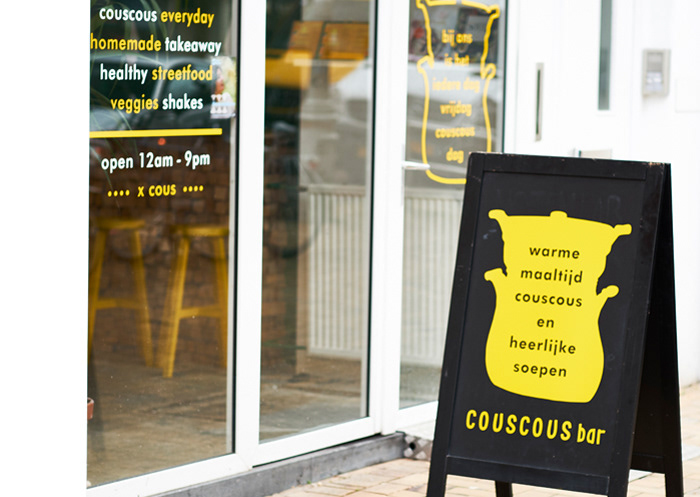 couscous everyday
homemade takeaway
healthy streetfood
veggies shakes
open 12am - 9pm
•••• x cous ••••
bij ons
is het
iedere dag
vrijdag
couscous
dag
warme
maaltijd
couscous
en
heerlijke
soepen
COUSCOUS bar